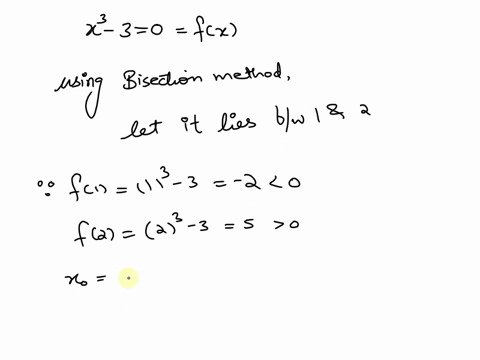 x³ - 3 = 0 = f(x)
using Bisection method,
let it lies b/w 1 & 2
∵ f(1) = (1)³ - 3 = -2 < 0
f(2) = (2)³ - 3 = 5 > 0
x₀ =